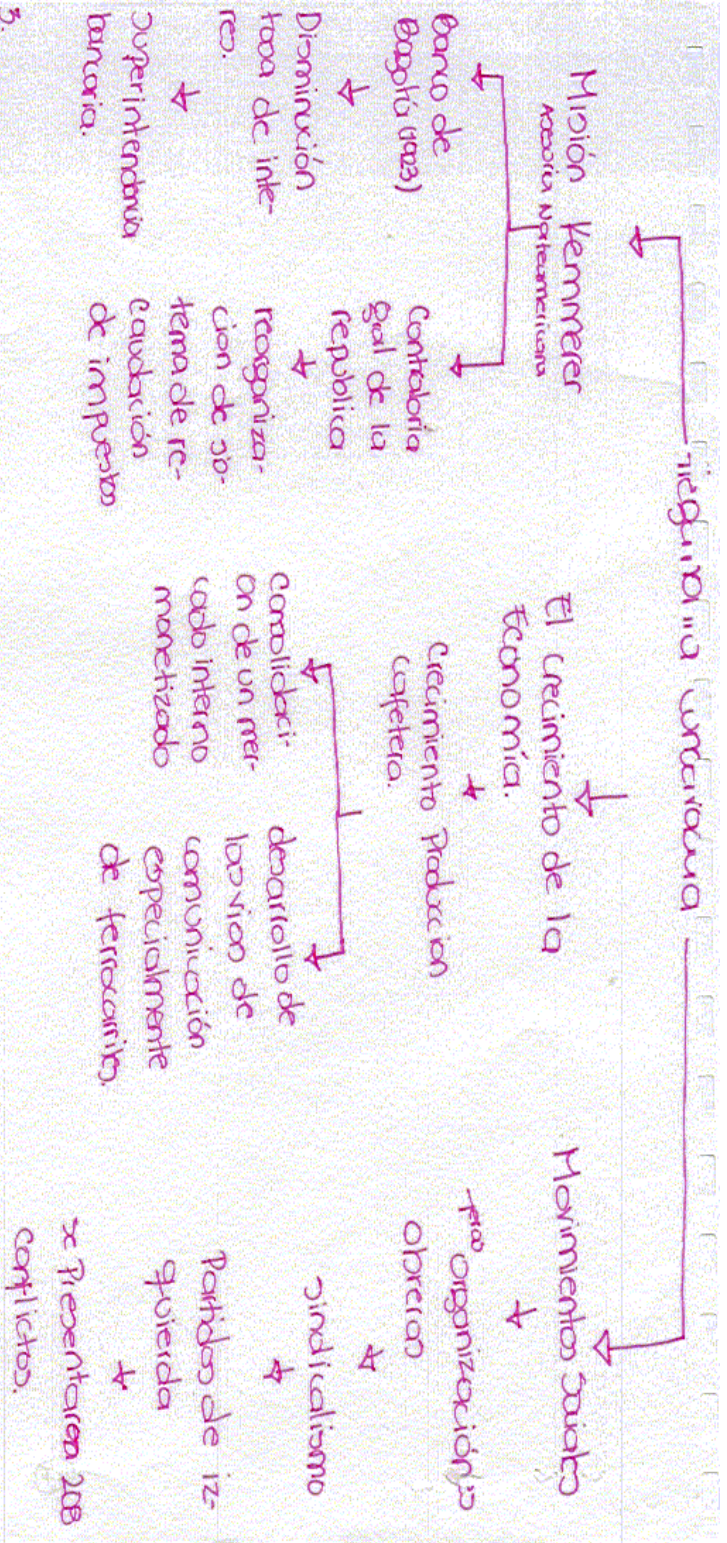 Hegemonia Conservadora
Misión Kemmerer
Asesoria Norteamericana
Banco de
Bogotá (1923)
Disminución
tasa de inte-
res.
Superintendencia
bancaria.
Contraloria
gral de la
republica
reorganiza-
cion de sis-
tema de re-
caudación
de impuestos
El crecimiento de la
Economía.
Crecimiento Produccion
cafetera.
Consolidaci-
on de un mer-
cado interno
monetizado
desarrollo de
las vias de
comunicación
especialmente
de ferrocarriles.
Movimientos Sociales
organizaciónes
obreras
sindicalismo
Partidos de iz-
quierda
se Presentaron 208
conflictos.
3.